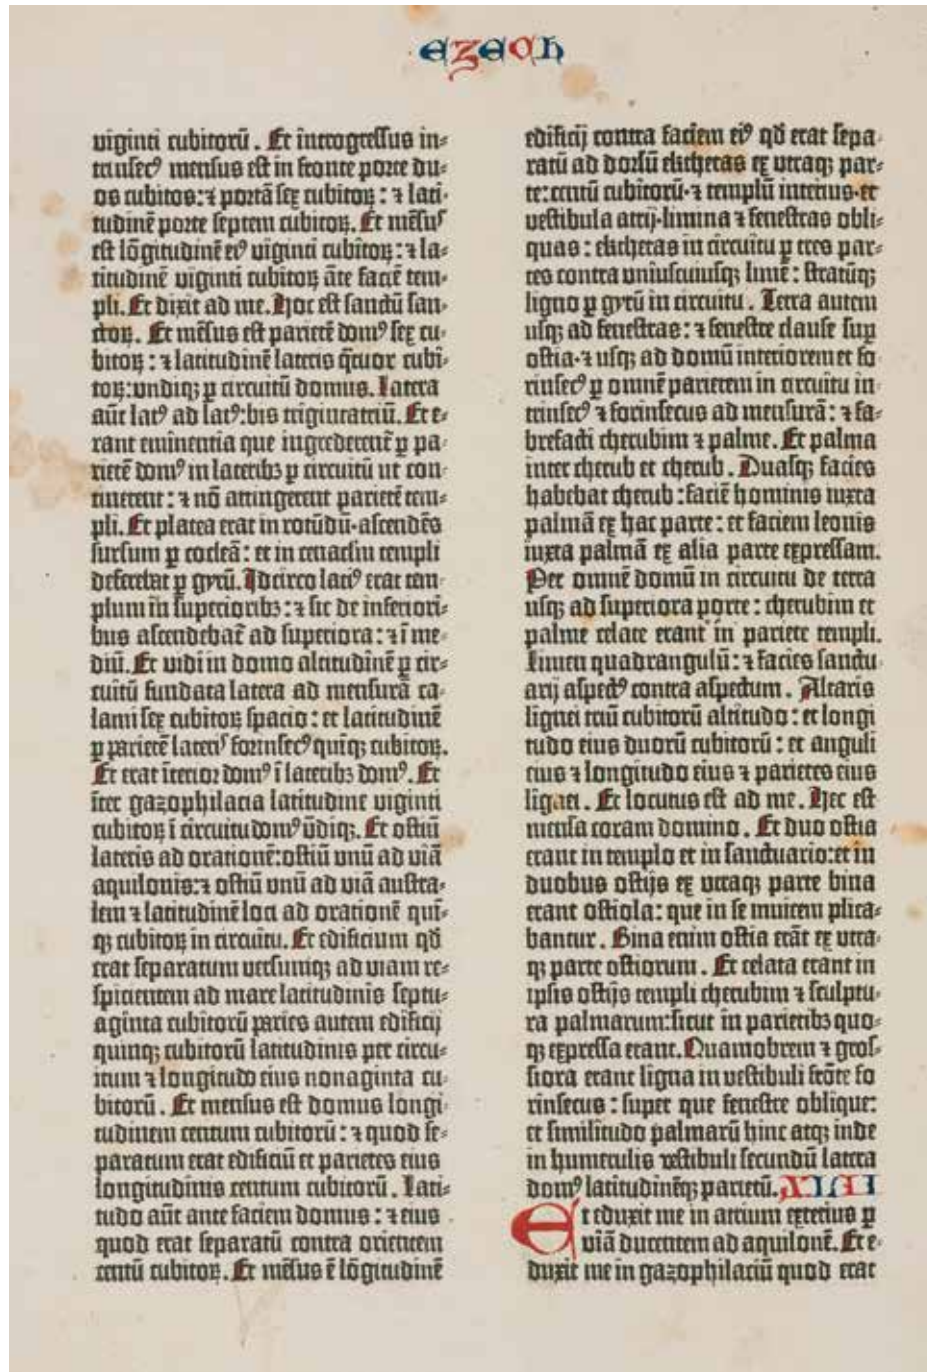 ezech
viginti cubitorū. Et introgressus in=
trinsecꝰ mensus est in fronte porte du=
os cubitos: ⁊ portā sex cubitoꝝ: ⁊ lati-
tudinē porte septem cubitoꝝ. Et mēsus
est lōgitudinē eiꝰ viginti cubitoꝝ: ⁊ la=
titudinē viginti cubitoꝝ āte faciē tem=
pli. Et dixit ad me. Hoc est sanctū san=
ctoꝝ. Et mēsus est parietē domꝰ sex cu=
bitoꝝ: ⁊ latitudinē lateris q̄tuor cubi=
toꝝ: undiqꝫ ꝑ circuitū domus. Latera
aūt latꝰ ad latꝰ: bis trigintatriū. Et e=
rant eminentia que ingrederent̄ ꝑ pa-
rietē domꝰ in lateribꝫ ꝑ circuitū ut con-
tinerent: ⁊ nō attingerent parietē tem=
pli. Et platea erat in rotūdū·ascendēs
sursum ꝑ cocleā: et in cenaclm templi
deferebat ꝑ gyrū. Idcirco latiꝰ erat tem-
plum in superioribꝫ: ⁊ sic de inferiori=
bus ascendebat̄ ad superiora: ⁊ ī me-
diū. Et vidi in domo altitudinē ꝑ cir=
cuitū fundata latera ad mensurā ca-
lami sex cubitoꝝ spacio: et latitudinē
ꝑ parietē lateris forinsecꝰ quīqꝫ cubitoꝝ.
Et erat īterior domꝰ ī lateribꝫ domꝰ. Et
īter gazophilacia latitudinē viginti
cubitoꝝ ī circuitu domꝰ ūdiqꝫ. Et ostiū
lateris ad orationē: ostiū unū ad viā
aquilonis: ⁊ ostiū unū ad viā austra-
lem ⁊ latitudinē loci ad orationē quī=
qꝫ cubitoꝝ in circuitu. Et edificium qd̄
erat separatum versumqꝫ ad viam re=
spicientem ad mare latitudinis septu=
aginta cubitorū paries autem edificij
quinqꝫ cubitorū latitudinis per circu-
itum ⁊ longitudo eius nonaginta cu-
bitorū. Et mensus est domus longi-
tudinem centum cubitorū: ⁊ quod se=
paratum erat edificiū et parietes eius
longitudinis centum cubitorū. Lati=
tudo aūt ante faciem domus: ⁊ eius
quod erat separatū contra orientem
centū cubitoꝝ. Et mēsus ē lōgitudinē
edificij contra faciem eiꝰ qd̄ erat sepa-
ratū ad dorsū ekthetas ex utraqꝫ par-
te: centū cubitorū·⁊ templū interius·et
vestibula atrij·limina ⁊ fenestras obli-
quas: ekthetas in circuitu ꝑ tres par=
tes contra uniuscuiusqꝫ limē: stratūqꝫ
ligno ꝑ gyrū in circuitu. Terra autem
usqꝫ ad fenestras: ⁊ fenestre clause suꝑ
ostia·⁊ usqꝫ ad domū interiorem et fo
rinsecꝰ ꝑ omnē parietem in circuitu in
trinsecꝰ ⁊ forinsecus ad mensurā: ⁊ fa-
brefacti cherubim ⁊ palme. Et palma
inter cherub et cherub. Duasqꝫ facies
habebat cherub: faciē hominis iuxta
palmā ex hac parte: et faciem leonis
iuxta palmā ex alia parte expressam.
Per omnē domū in circuitu de terra
usqꝫ ad superiora porte: cherubim et
palme celate erant in pariete templi.
Limen quadrangulū: ⁊ facies sanctu-
arij aspectꝰ contra aspectum. Altaris
lignei triū cubitorū altitudo: et longi
tudo eius duorū cubitorū: et anguli
eius ⁊ longitudo eius ⁊ parietes eius
lignei. Et locutus est ad me. Hec est
mensa coram domino. Et duo ostia
erant in templo et in sanctuario: et in
duobus ostijs ex utraqꝫ parte bina
erant ostiola: que in se invicem plica-
bantur. Bina enim ostia erāt ex utra-
qꝫ parte ostiorum. Et celata erant in
ipsis ostijs templi cherubim ⁊ sculptu-
ra palmarum: sicut in parietibꝫ quo=
qꝫ expressa erant. Quamobrem ⁊ gros-
siora erant ligna in vestibuli frōte fo
rinsecus: super que fenestre oblique:
et similitudo palmarū hinc atqꝫ inde
in humerulis vestibuli secundū latera
domꝰ latitudinēqꝫ parietū. XLII
Et eduxit me in atrium exterius ꝑ
viā ducentem ad aquilonē. Et e-
duxit me in gazophilaciū quod erat